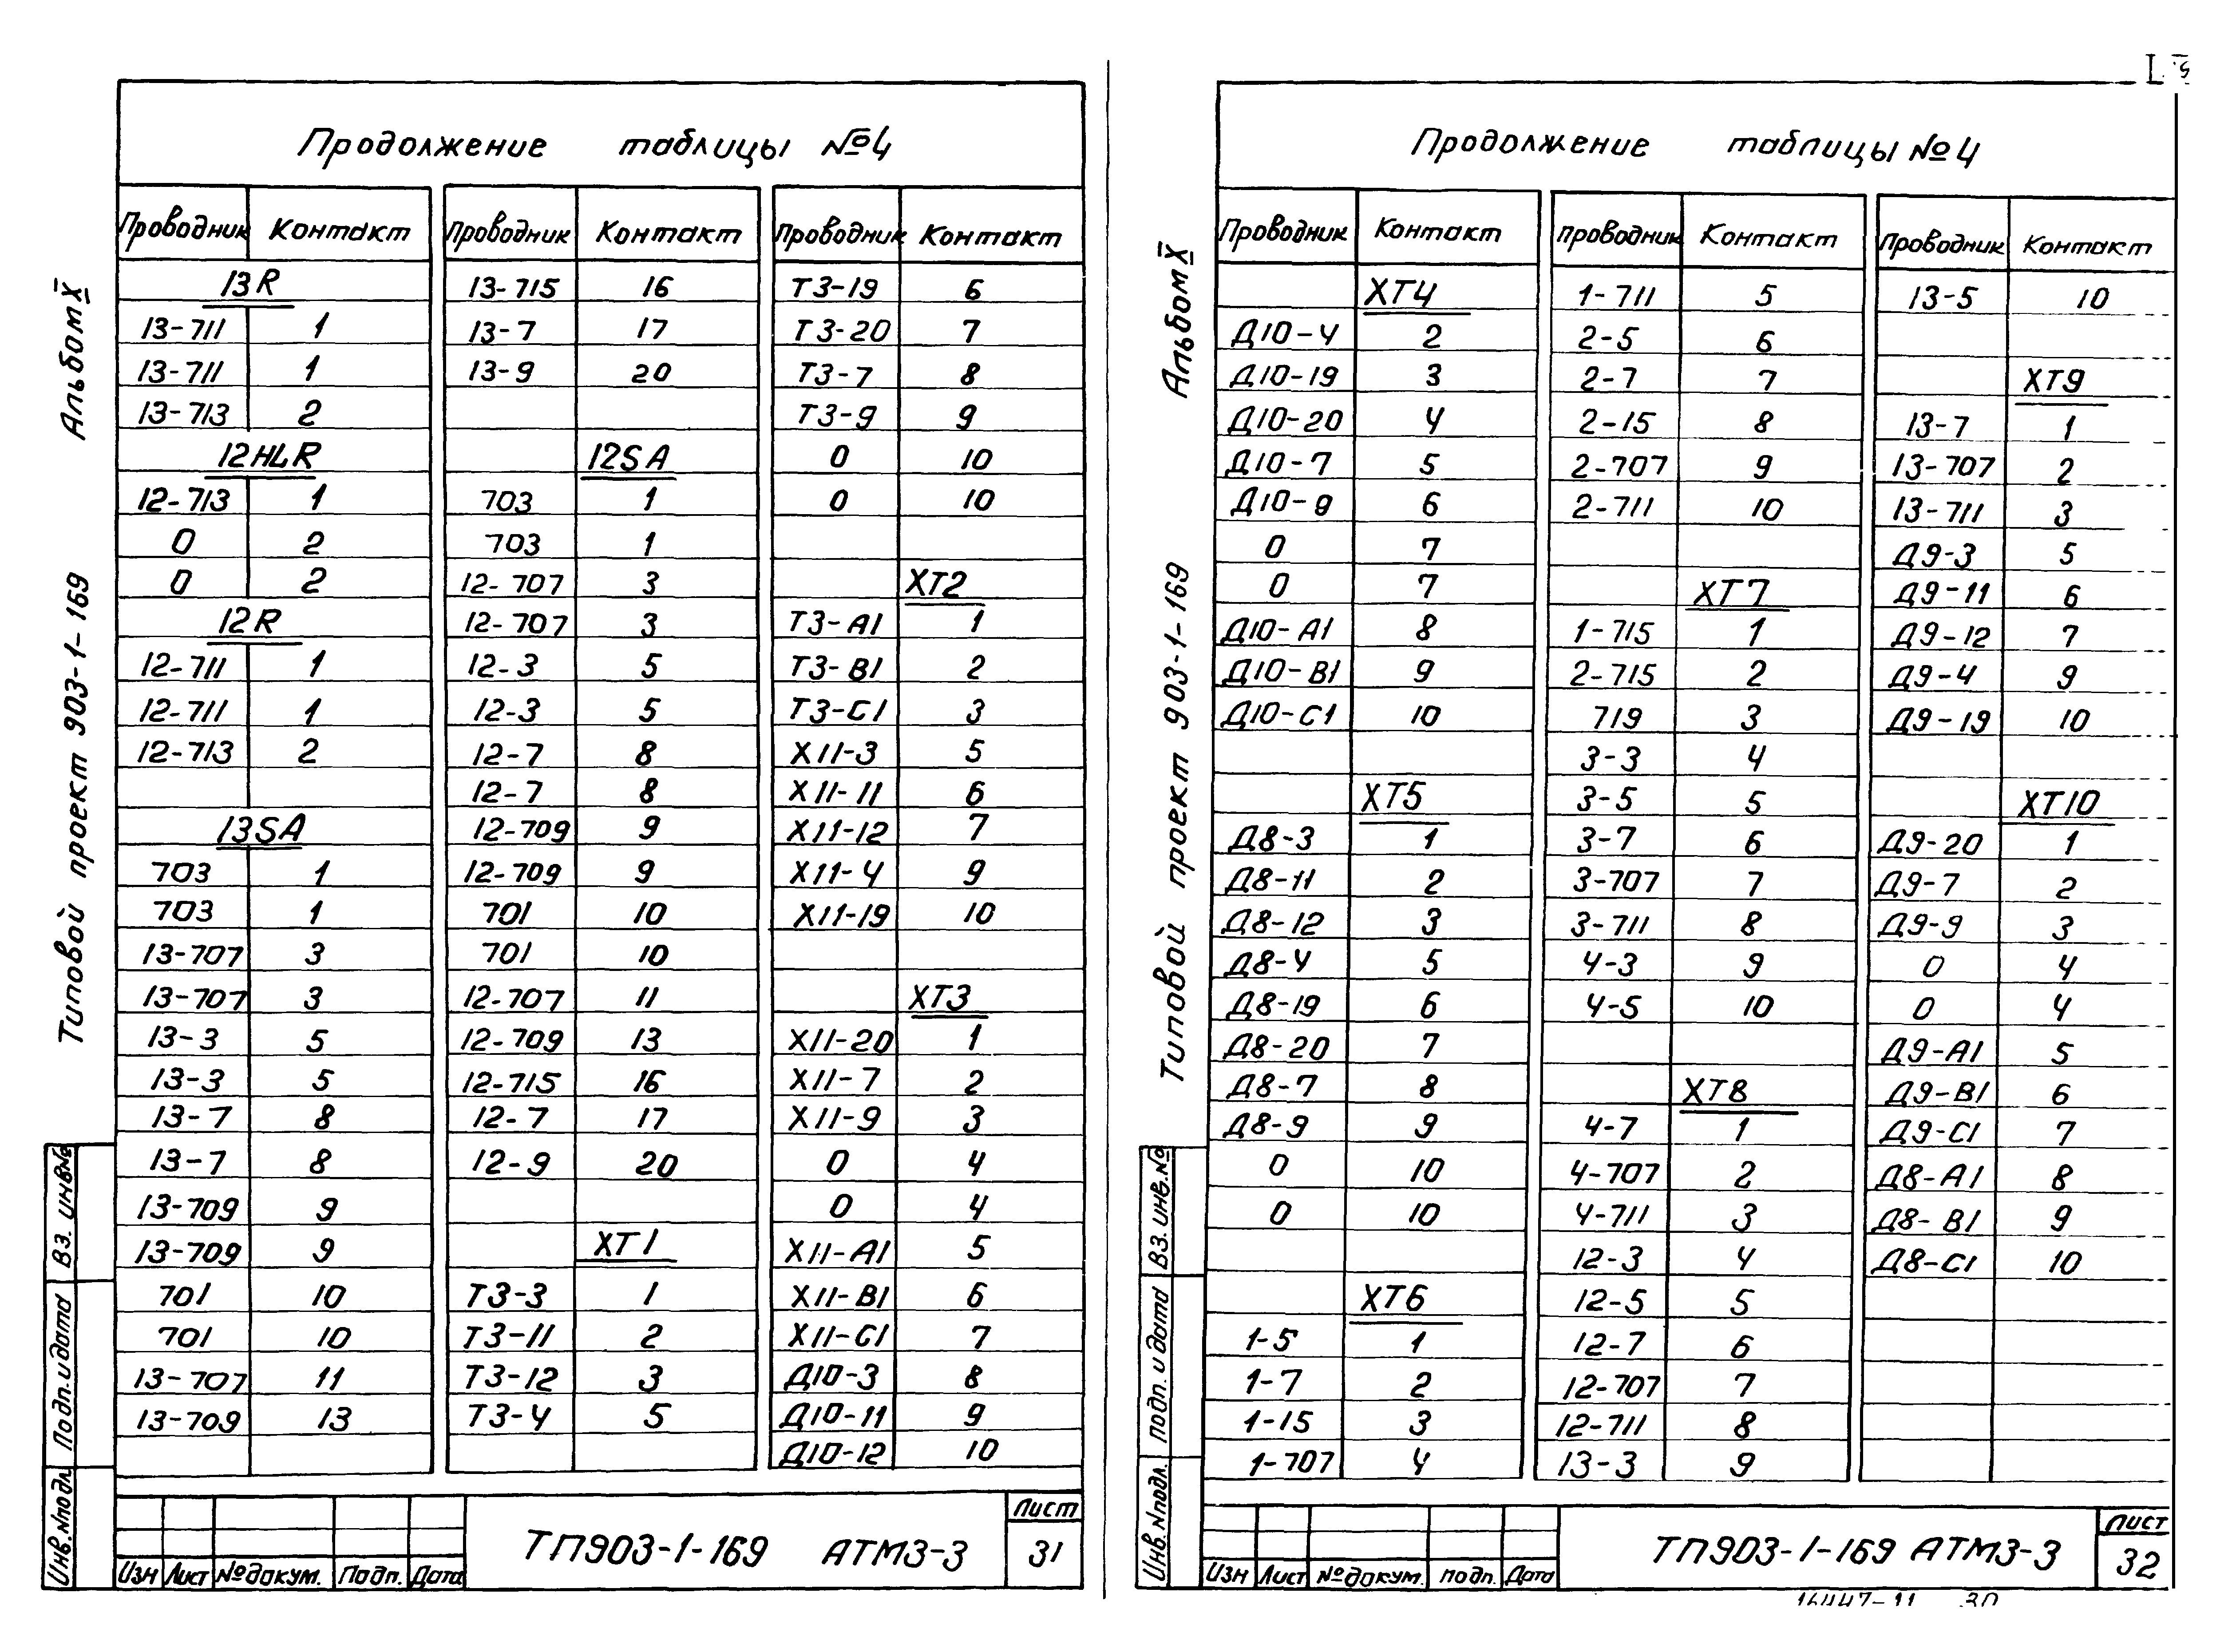 Продолжение таблицы №4
Проводник Контакт
13R
13-711 1
13-711 1
13-713 2
12HLR
12-713 1
0 2
0 2
12R
12-711 1
12-711 1
12-713 2
13SA
703 1
703 1
13-707 3
13-707 3
13-3 5
13-3 5
13-7 8
13-7 8
13-709 9
13-709 9
701 10
701 10
13-707 11
13-709 13
Проводник Контакт
13-715 16
13-7 17
13-9 20
12SA
703 1
703 1
12-707 3
12-707 3
12-3 5
12-3 5
12-7 8
12-7 8
12-709 9
12-709 9
701 10
701 10
12-707 11
12-709 13
12-715 16
12-7 17
12-9 20
XT1
T3-3 1
T3-11 2
T3-12 3
T3-4 5
Проводник Контакт
T3-19 6
T3-20 7
T3-7 8
T3-9 9
0 10
0 10
XT2
T3-A1 1
T3-B1 2
T3-C1 3
X11-3 5
X11-11 6
X11-12 7
X11-4 9
X11-19 10
XT3
X11-20 1
X11-7 2
X11-9 3
0 4
0 4
X11-A1 5
X11-B1 6
X11-C1 7
Д10-3 8
Д10-11 9
Д10-12 10
Альбом X
Типовой проект 903-1-169
Вз. инв.№
Подп. и дата
Инв.№подл.
Изн Лист №докум. Подп. Дата
ТП903-1-169 АТМ3-3
Лист
31
Продолжение таблицы №4
Проводник Контакт
XT4
Д10-4 2
Д10-19 3
Д10-20 4
Д10-7 5
Д10-9 6
0 7
0 7
Д10-A1 8
Д10-B1 9
Д10-C1 10
XT5
Д8-3 1
Д8-11 2
Д8-12 3
Д8-4 5
Д8-19 6
Д8-20 7
Д8-7 8
Д8-9 9
0 10
0 10
XT6
1-5 1
1-7 2
1-15 3
1-707 4
проводник Контакт
1-711 5
2-5 6
2-7 7
2-15 8
2-707 9
2-711 10
XT7
1-715 1
2-715 2
719 3
3-3 4
3-5 5
3-7 6
3-707 7
3-711 8
4-3 9
4-5 10
XT8
4-7 1
4-707 2
4-711 3
12-3 4
12-5 5
12-7 6
12-707 7
12-711 8
13-3 9
Проводник Контакт
13-5 10
XT9
13-7 1
13-707 2
13-711 3
Д9-3 5
Д9-11 6
Д9-12 7
Д9-4 9
Д9-19 10
XT10
Д9-20 1
Д9-7 2
Д9-9 3
0 4
0 4
Д9-A1 5
Д9-B1 6
Д9-C1 7
Д8-A1 8
Д8-B1 9
Д8-C1 10
Альбом X
Типовой проект 903-1-169
Вз. инв.№
Подп. и дата
Инв.№подл.
Изн Лист №докум. подп. Дата
ТП903-1-169 АТМ3-3
Лист
32
16447-11 30